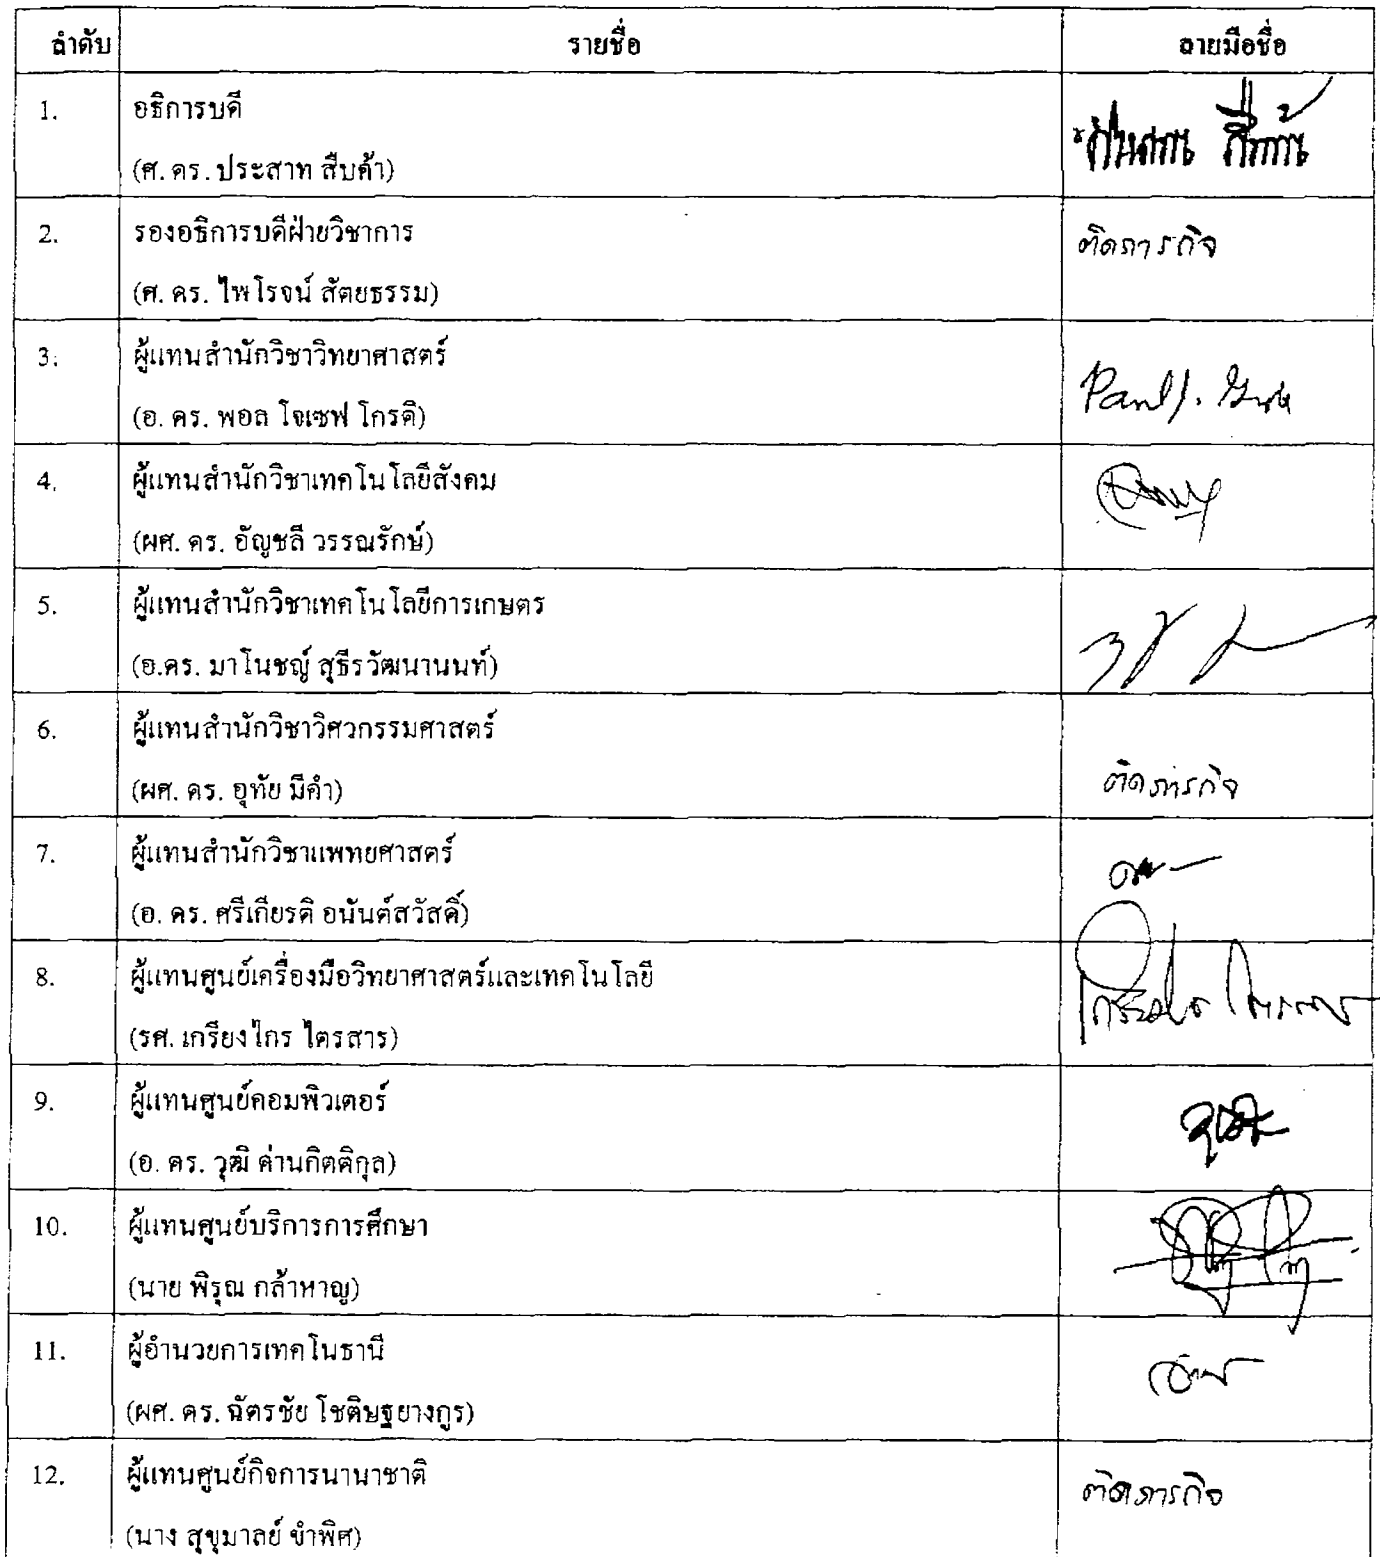 ลำดับ รายชื่อ ลายมือชื่อ
1. อธิการบดี
(ศ. ดร. ประสาท สืบค้า)
2. รองอธิการบดีฝ่ายวิชาการ ติดภารกิจ
(ศ. ดร. ไพโรจน์ สัตยธรรม)
3. ผู้แทนสำนักวิชาวิทยาศาสตร์
(อ. ดร. พอล โจเซฟ โกรดิ) Paul J.
4. ผู้แทนสำนักวิชาเทคโนโลยีสังคม
(ผศ. ดร. อัญชลี วรรณรักษ์)
5. ผู้แทนสำนักวิชาเทคโนโลยีการเกษตร
(อ.ดร. มาโนชญ์ สุธีรวัฒนานนท์)
6. ผู้แทนสำนักวิชาวิศวกรรมศาสตร์
(ผศ. ดร. อุทัย มีคำ) ติดภารกิจ
7. ผู้แทนสำนักวิชาแพทยศาสตร์
(อ. ดร. ศรีเกียรติ อนันต์สวัสดิ์)
8. ผู้แทนศูนย์เครื่องมือวิทยาศาสตร์และเทคโนโลยี
(รศ. เกรียงไกร ไตรสาร)
9. ผู้แทนศูนย์คอมพิวเตอร์
(อ. ดร. วุฒิ ด่านกิตติกุล)
10. ผู้แทนศูนย์บริการการศึกษา
(นาย พิรุณ กล้าหาญ)
11. ผู้อำนวยการเทคโนธานี
(ผศ. ดร. ฉัตรชัย โชติษฐยางกูร)
12. ผู้แทนศูนย์กิจการนานาชาติ ติดภารกิจ
(นาง สุขุมาลย์ ขำพิศ)